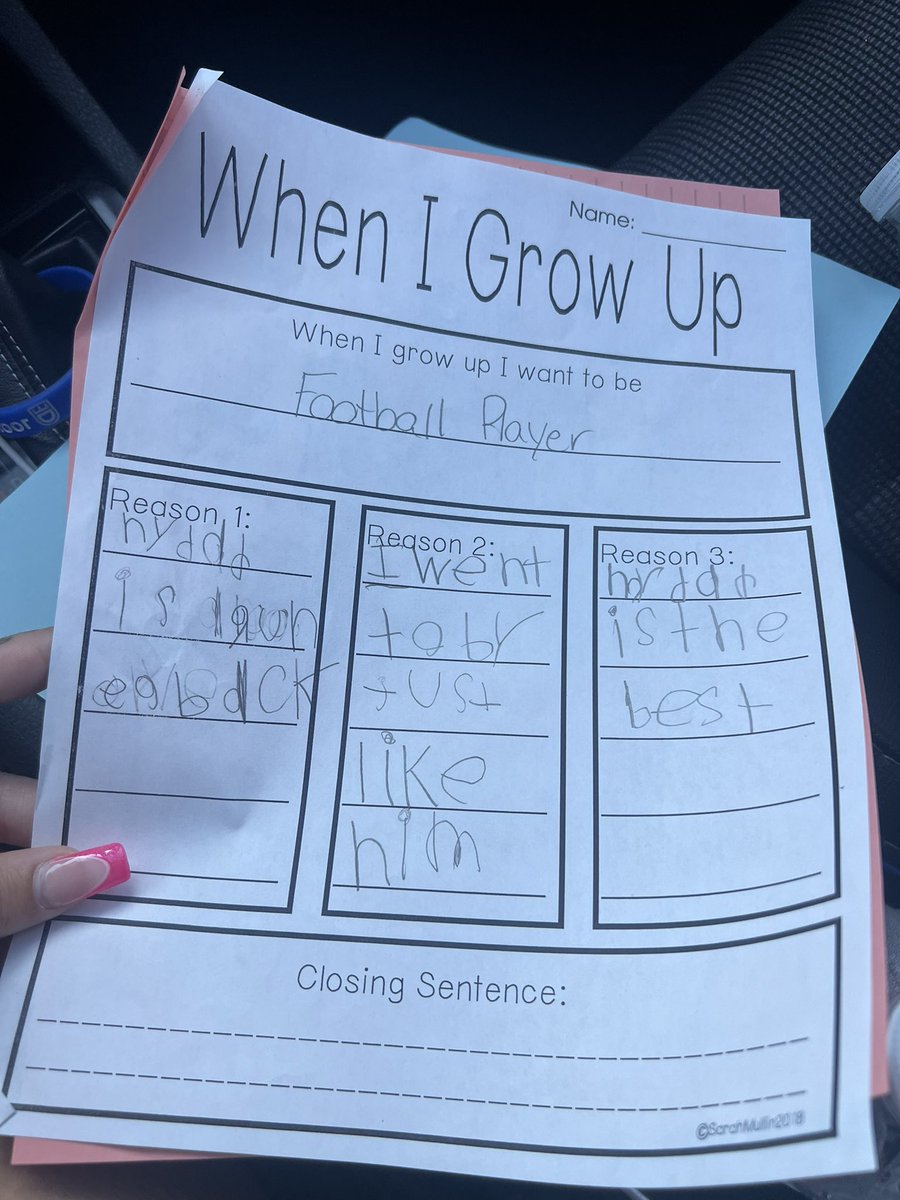 Name:
When I Grow Up
When I grow up I want to be
Football Player
Reason 1:
is
Reason 2:
I went
to br
just
like
him
Reason 3:
is the
best
Closing Sentence:
©SarahMullin2018